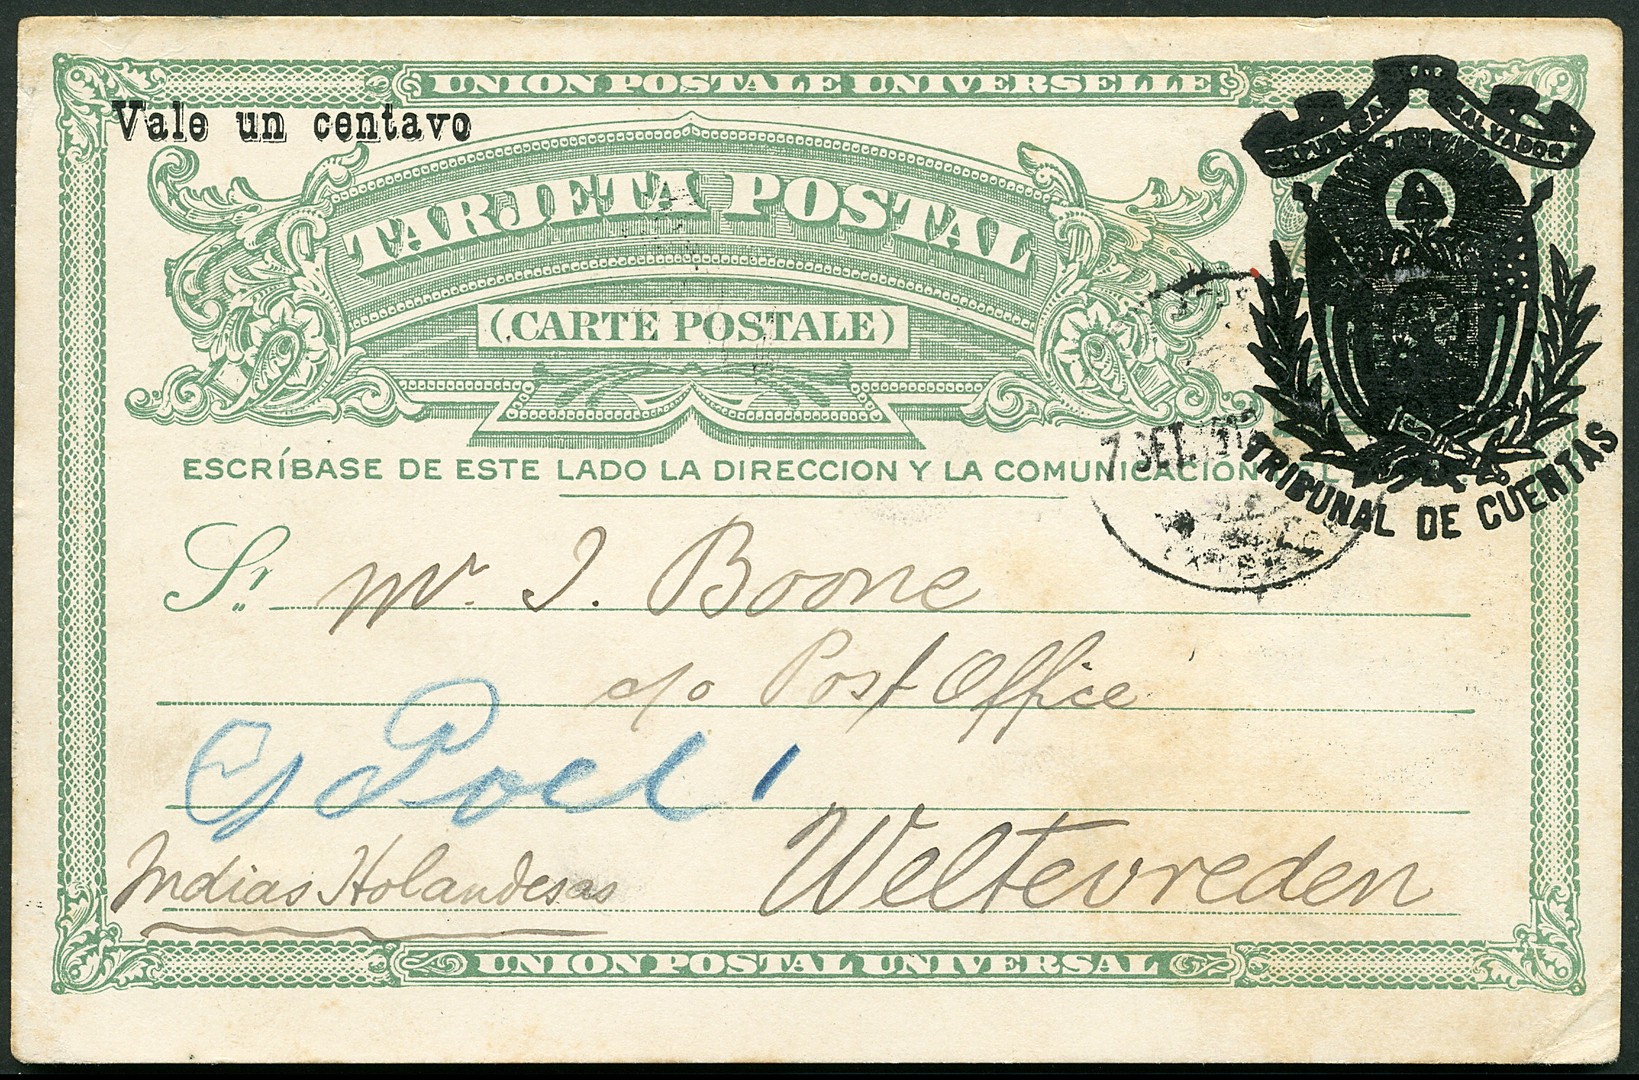 UNION POSTALE UNIVERSELLE
Vale un centavo
SALVADOR
TARJETA POSTAL
(CARTE POSTALE)
7 SET. 
TRIBUNAL DE CUENTAS
ESCRÍBASE DE ESTE LADO LA DIRECCION Y LA COMUNICACION
Sr. Mr. J. Boone
c/o Post Office
Weltevreden
Indias Holandesas
UNION POSTAL UNIVERSAL